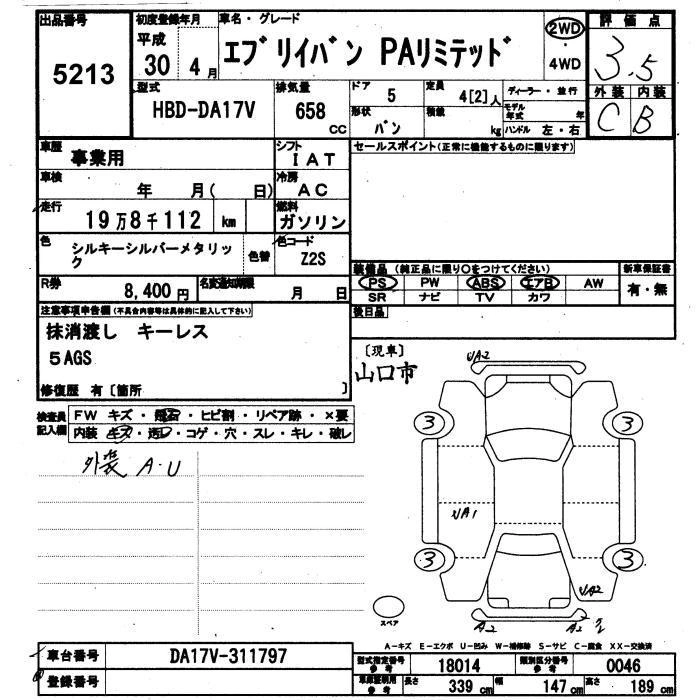 出品番号
5213
初度登録年月
平成
30 4月
車名・グレード
エブリイバン PAリミテッド
2WD
4WD
評価点
3.5
外装 内装
C B
型式
HBD-DA17V
排気量
658
CC
ドア
5
定員
4[2]人
ディーラー・並行
形状
バン
積載
kg
モデル年式
年
ハンドル 左・右
車歴
事業用
シフト
IAT
車検
年 月( 日)
冷房
AC
走行
19万8千112 km
燃料
ガソリン
色
シルキーシルバーメタリック
色替
色コード
Z2S
R券
8,400円
名変通知期限
月 日
セールスポイント(正常に機能するものに限ります)
装備品(純正品に限り〇をつけてください)
PS PW ABS エアB AW
SR ナビ TV カワ
新車保証書
有・無
後日品
注意事項申告欄(不具合内容等は具体的に記入して下さい)
抹消渡し キーレス
5AGS
修復歴 有〔箇所 〕
[現車]
山口市
検査員記入欄
FW キズ・飛石・ヒビ割・リペア跡・×要
内装 キズ・汚レ・コゲ・穴・スレ・キレ・破レ
外装 A・U
UA2
3
3
UA1
3
3
UA2
A2
A2
スペア
A-キズ E-エクボ U-凹み W-補修跡 S-サビ C-腐食 XX-交換済
車台番号
DA17V-311797
登録番号
型式指定番号 参考
18014
類別区分番号 参考
0046
車庫証明用 参考
長さ
339 cm
幅
147 cm
高さ
189 cm